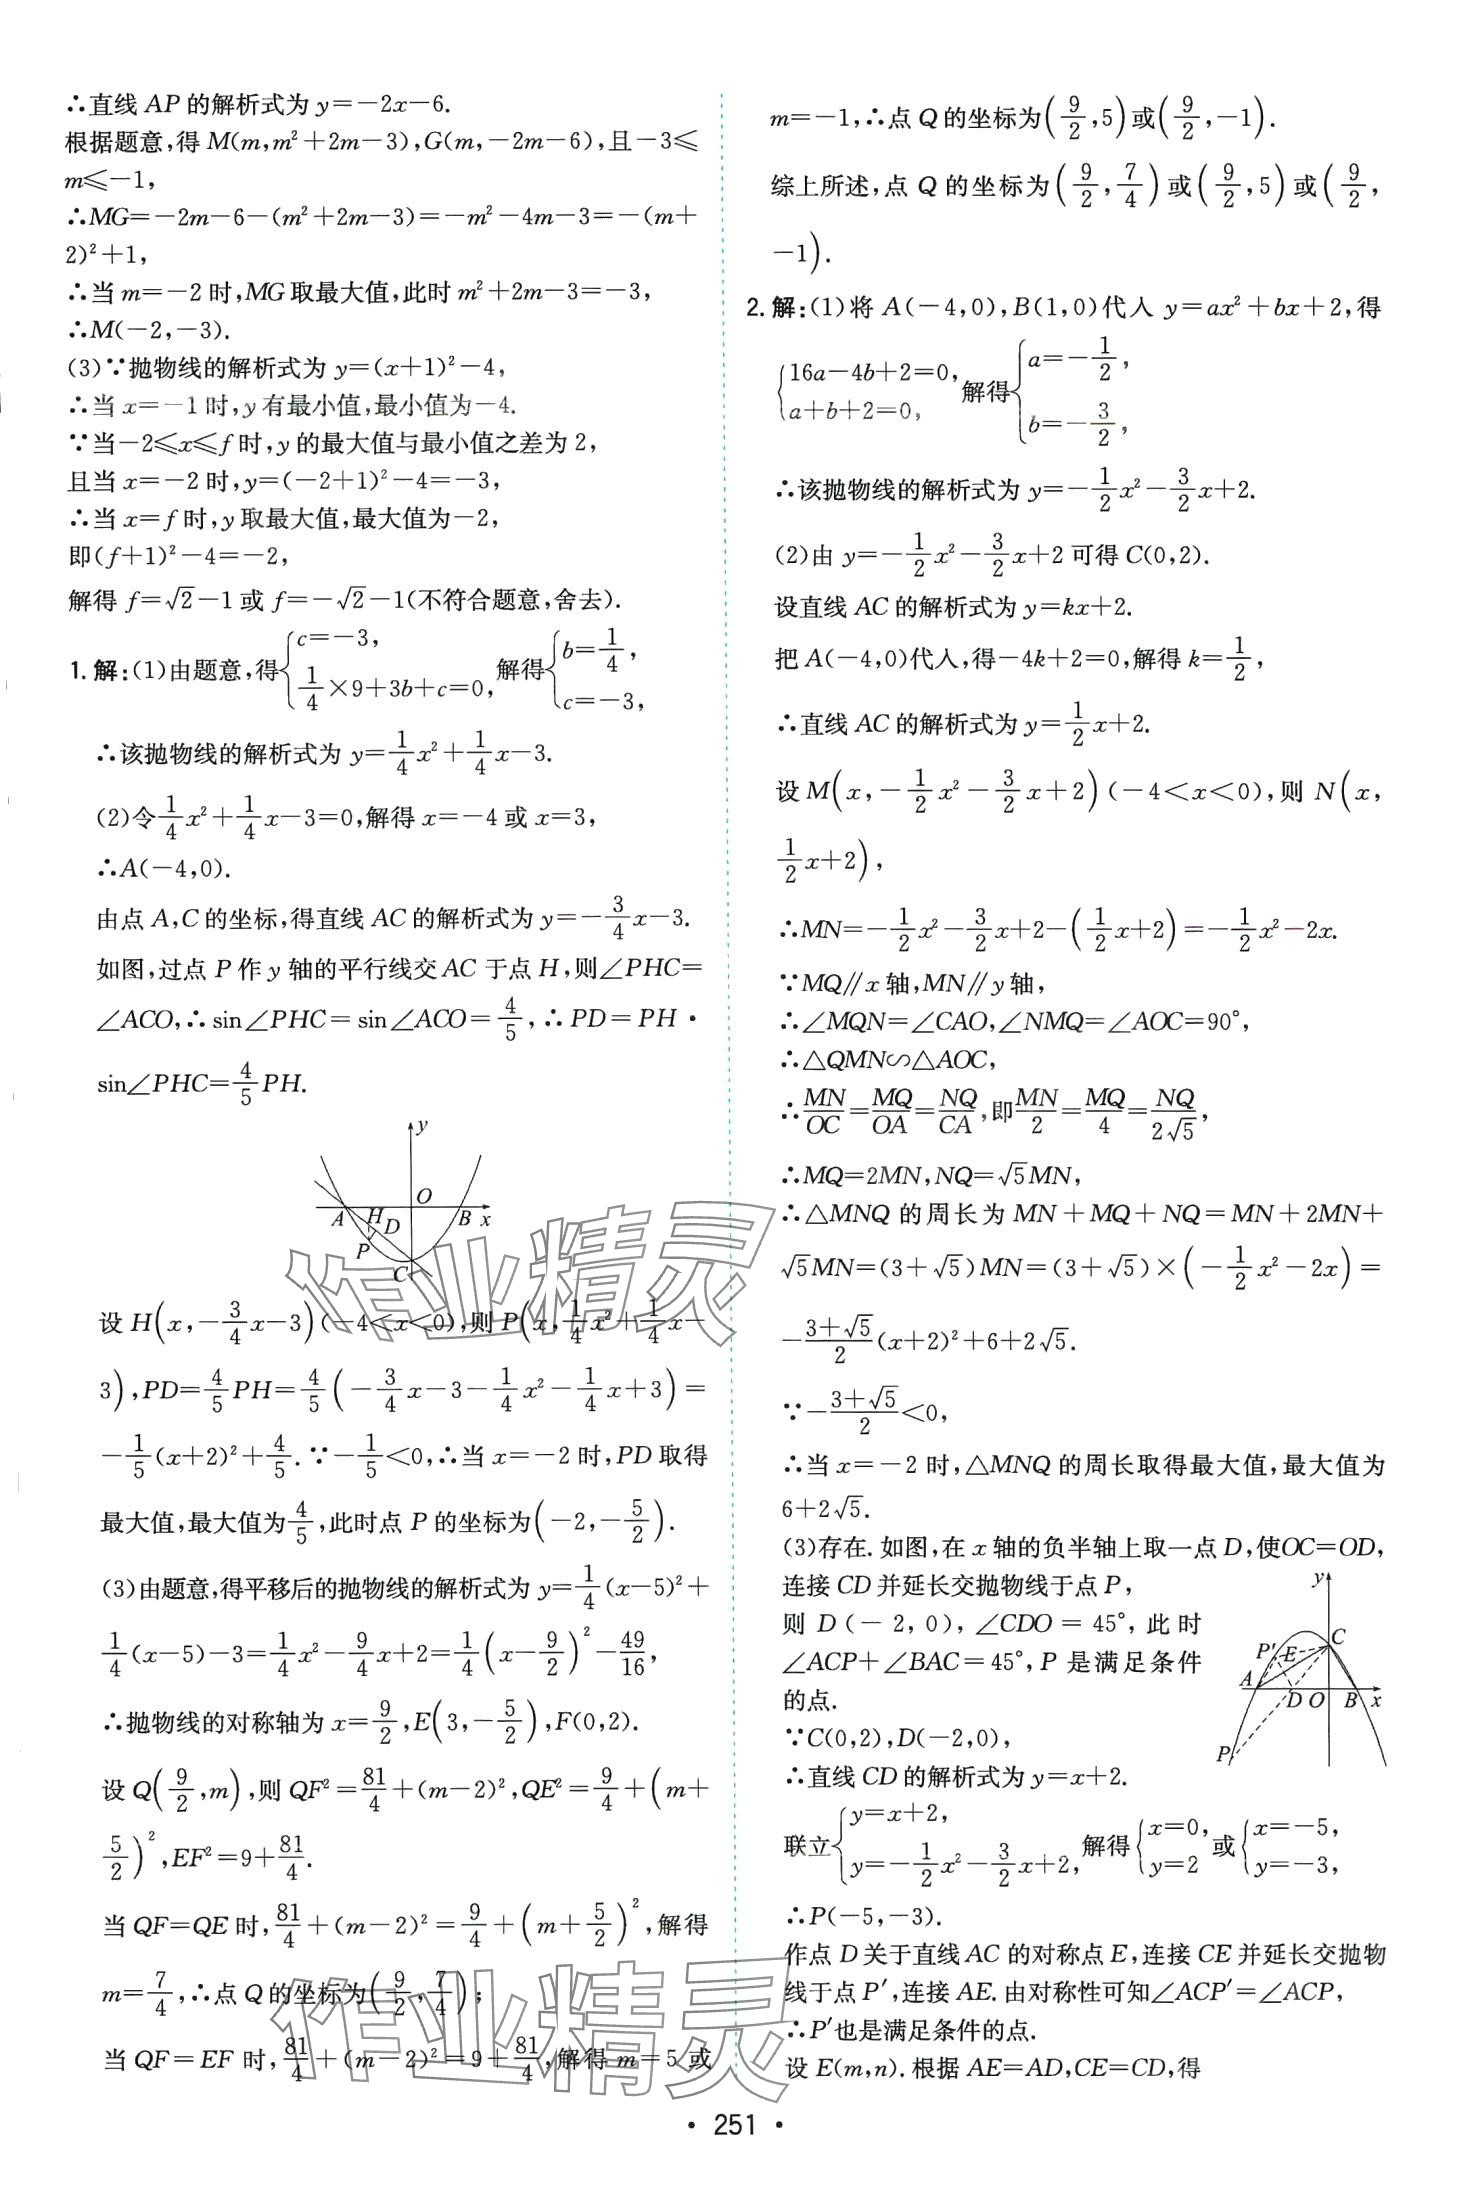 ∴直线 AP 的解析式为 y=-2x-6.
根据题意,得 M(m,m²+2m-3),G(m,-2m-6),且-3≤
m≤-1,
∴MG=-2m-6-(m²+2m-3)=-m²-4m-3=-(m+
2)²+1,
∴当 m=-2 时,MG 取最大值,此时 m²+2m-3=-3,
∴M(-2,-3).
(3)∵抛物线的解析式为 y=(x+1)²-4,
∴当 x=-1 时,y 有最小值,最小值为-4.
∵当-2≤x≤f 时,y 的最大值与最小值之差为 2,
且当 x=-2 时,y=(-2+1)²-4=-3,
∴当 x=f 时,y 取最大值,最大值为-2,
即(f+1)²-4=-2,
解得 f=√2-1 或 f=-√2-1(不符合题意,舍去).
1. 解:(1)由题意,得{c=-3, 1/4×9+3b+c=0, 解得{b=1/4, c=-3,
∴该抛物线的解析式为 y=1/4x²+1/4x-3.
(2)令1/4x²+1/4x-3=0,解得 x=-4 或 x=3,
∴A(-4,0).
由点 A,C 的坐标,得直线 AC 的解析式为 y=-3/4x-3.
如图,过点 P 作 y 轴的平行线交 AC 于点 H,则∠PHC=
∠ACO,∴sin∠PHC=sin∠ACO=4/5,∴PD=PH·
sin∠PHC=4/5PH.
y
O
A H D B x
P
C
设 H(x,-3/4x-3)(-4<x<0),则 P(x,1/4x²+1/4x-
3),PD=4/5PH=4/5(-3/4x-3-1/4x²-1/4x+3)=
-1/5(x+2)²+4/5.∵-1/5<0,∴当 x=-2 时,PD 取得
最大值,最大值为4/5,此时点 P 的坐标为(-2,-5/2).
(3)由题意,得平移后的抛物线的解析式为 y=1/4(x-5)²+
1/4(x-5)-3=1/4x²-9/4x+2=1/4(x-9/2)²-49/16,
∴抛物线的对称轴为 x=9/2,E(3,-5/2),F(0,2).
设 Q(9/2,m),则 QF²=81/4+(m-2)²,QE²=9/4+(m+
5/2)²,EF²=9+81/4.
当 QF=QE 时,81/4+(m-2)²=9/4+(m+5/2)²,解得
m=7/4,∴点 Q 的坐标为(9/2,7/4);
当 QF=EF 时,81/4+(m-2)²=9+81/4,解得 m=5 或
m=-1,∴点 Q 的坐标为(9/2,5)或(9/2,-1).
综上所述,点 Q 的坐标为(9/2,7/4)或(9/2,5)或(9/2,
-1).
2. 解:(1)将 A(-4,0),B(1,0)代入 y=ax²+bx+2,得
{16a-4b+2=0, a+b+2=0, 解得{a=-1/2, b=-3/2,
∴该抛物线的解析式为 y=-1/2x²-3/2x+2.
(2)由 y=-1/2x²-3/2x+2 可得 C(0,2).
设直线 AC 的解析式为 y=kx+2.
把 A(-4,0)代入,得-4k+2=0,解得 k=1/2,
∴直线 AC 的解析式为 y=1/2x+2.
设 M(x,-1/2x²-3/2x+2)(-4<x<0),则 N(x,
1/2x+2),
∴MN=-1/2x²-3/2x+2-(1/2x+2)=-1/2x²-2x.
∵MQ∥x 轴,MN∥y 轴,
∴∠MQN=∠CAO,∠NMQ=∠AOC=90°,
∴△QMN∽△AOC,
∴MN/OC=MQ/OA=NQ/CA,即MN/2=MQ/4=NQ/2√5,
∴MQ=2MN,NQ=√5MN,
∴△MNQ 的周长为 MN+MQ+NQ=MN+2MN+
√5MN=(3+√5)MN=(3+√5)×(-1/2x²-2x)=
-(3+√5)/2(x+2)²+6+2√5.
∵-(3+√5)/2<0,
∴当 x=-2 时,△MNQ 的周长取得最大值,最大值为
6+2√5.
(3)存在. 如图,在 x 轴的负半轴上取一点 D,使OC=OD,
连接 CD 并延长交抛物线于点 P,
则 D(-2,0),∠CDO=45°,此时
∠ACP+∠BAC=45°,P 是满足条件
的点.
y
P′ E C
A D O B x
P
∵C(0,2),D(-2,0),
∴直线 CD 的解析式为 y=x+2.
联立{y=x+2, y=-1/2x²-3/2x+2, 解得{x=0, y=2 或{x=-5, y=-3,
∴P(-5,-3).
作点 D 关于直线 AC 的对称点 E,连接 CE 并延长交抛物
线于点 P′,连接 AE. 由对称性可知∠ACP′=∠ACP,
∴P′也是满足条件的点.
设 E(m,n). 根据 AE=AD,CE=CD,得
· 251 ·
作业精灵
作业精灵